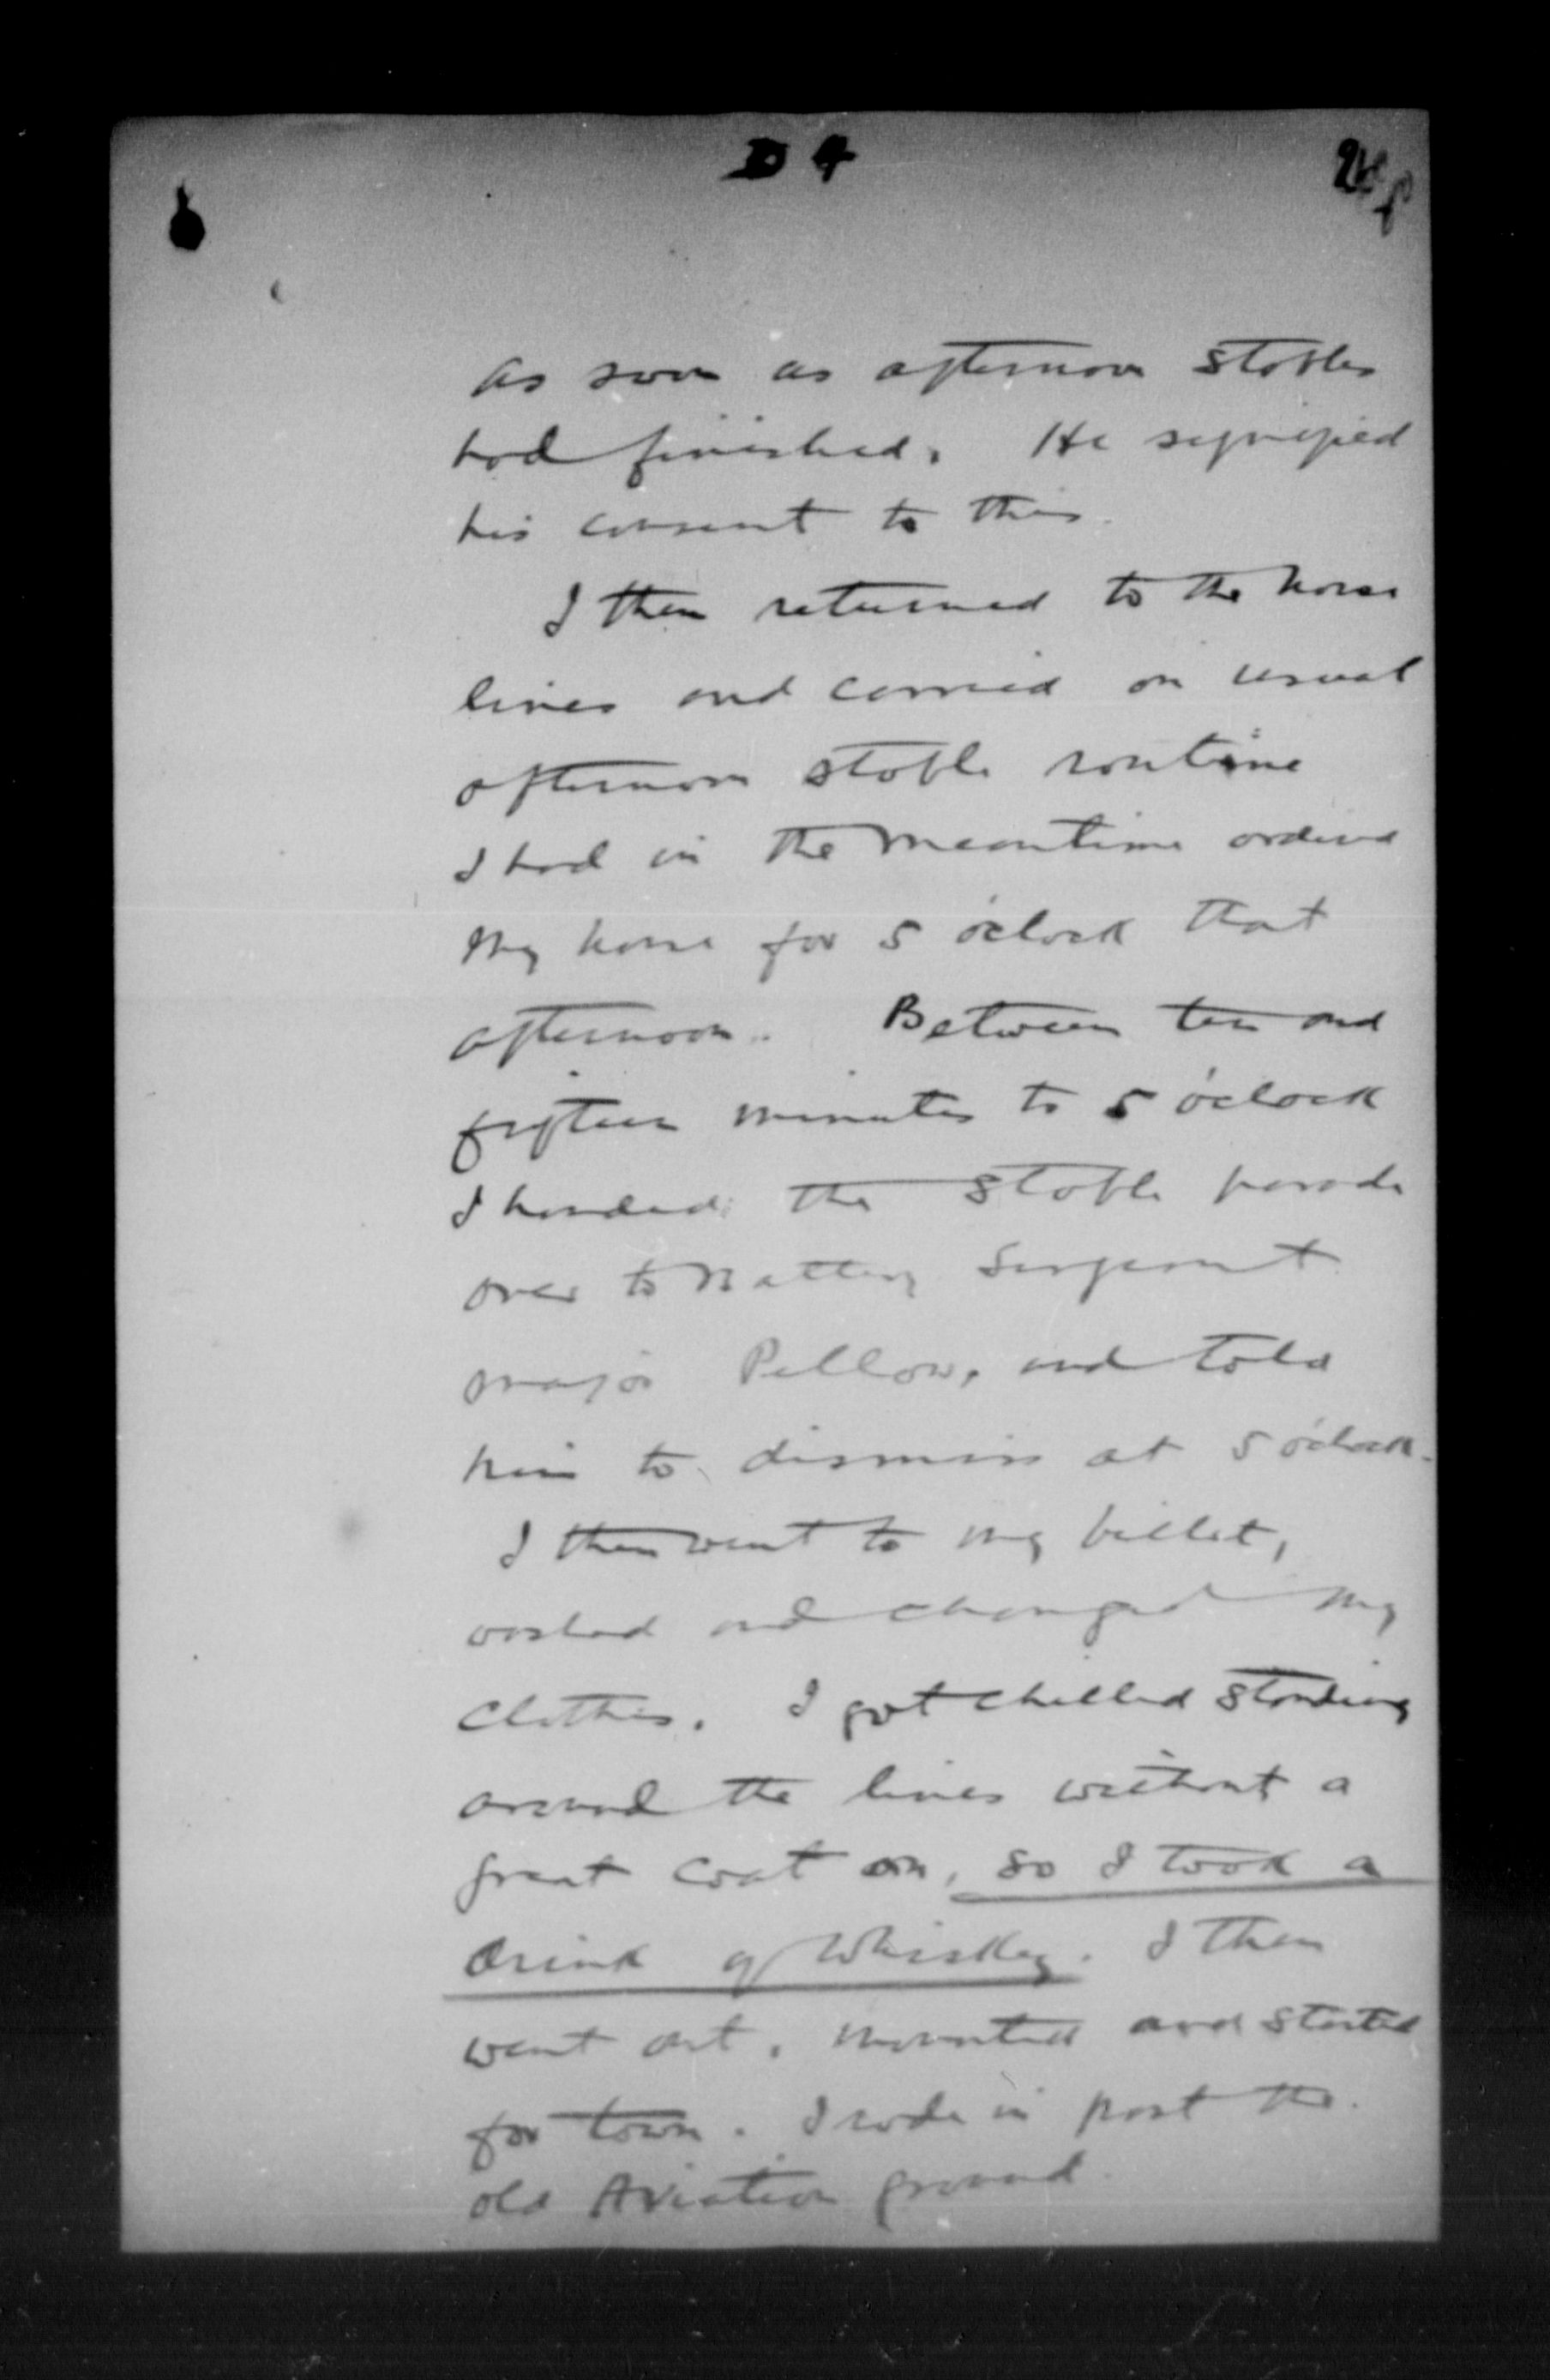 D 4
as soon as afternoon stables
had finished. He signified
his consent to this.
I then returned to the horse
lines and carried on usual
afternoon stable routine
I had in the meantime ordered
my horse for 5 o'clock that
afternoon. Between ten and
fifteen minutes to 5 o'clock
I handed the stable parade
over to Battery Sergeant
Major Pellow, and told
him to dismiss at 5 o'clock.
I then went to my billet,
washed and changed my
clothes. I got chilled standing
around the lines without a
great coat on, so I took a
drink of Whiskey. I then
went out, mounted and started
for town. I rode in past the
old Aviation ground.